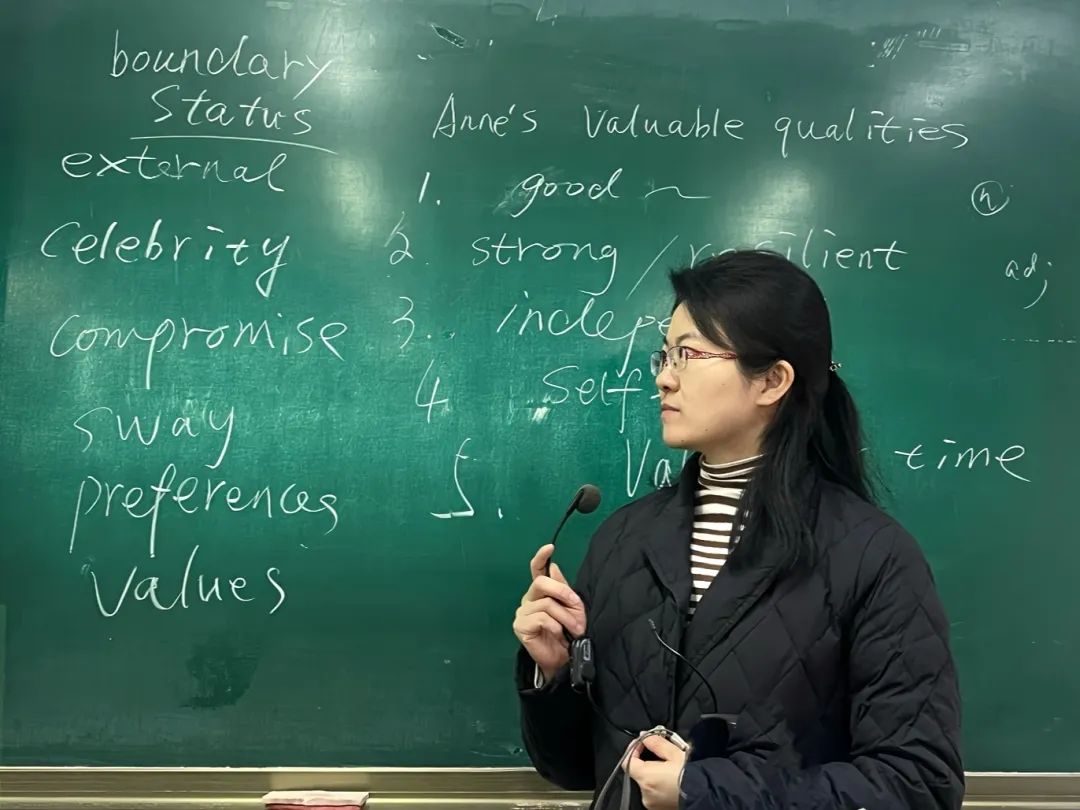 boundary
Status
external
Celebrity
compromise
sway
preferences
values
Anne's valuable qualities
1. good ~
2. strong / resilient
3. indepe
4 Self-
5. Va time
n
adj